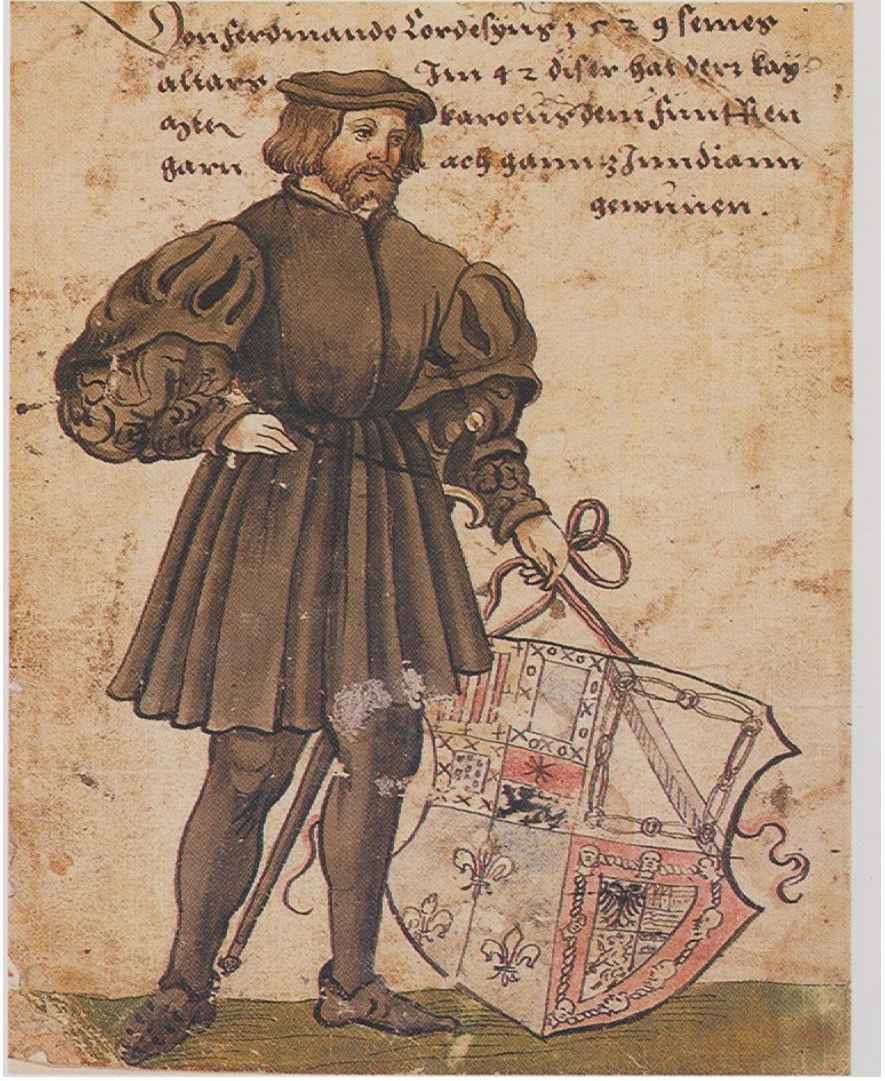 Don ferdmando Cordesyus 1529 semes
altars Im 42 diser hat dem kay
karolus dem funfften
ach gannz Inndiann
gewunen.